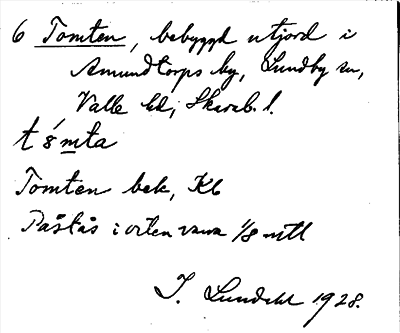 6 Tomten, bebyggd utjord i
Amundtorps by, Lundby sn,
Valle hd, Skarab. l.
t ǻ mta
Tomten bek, Kb
Påstås i orten vara 1/8 mtl
I. Lundahl 1928.